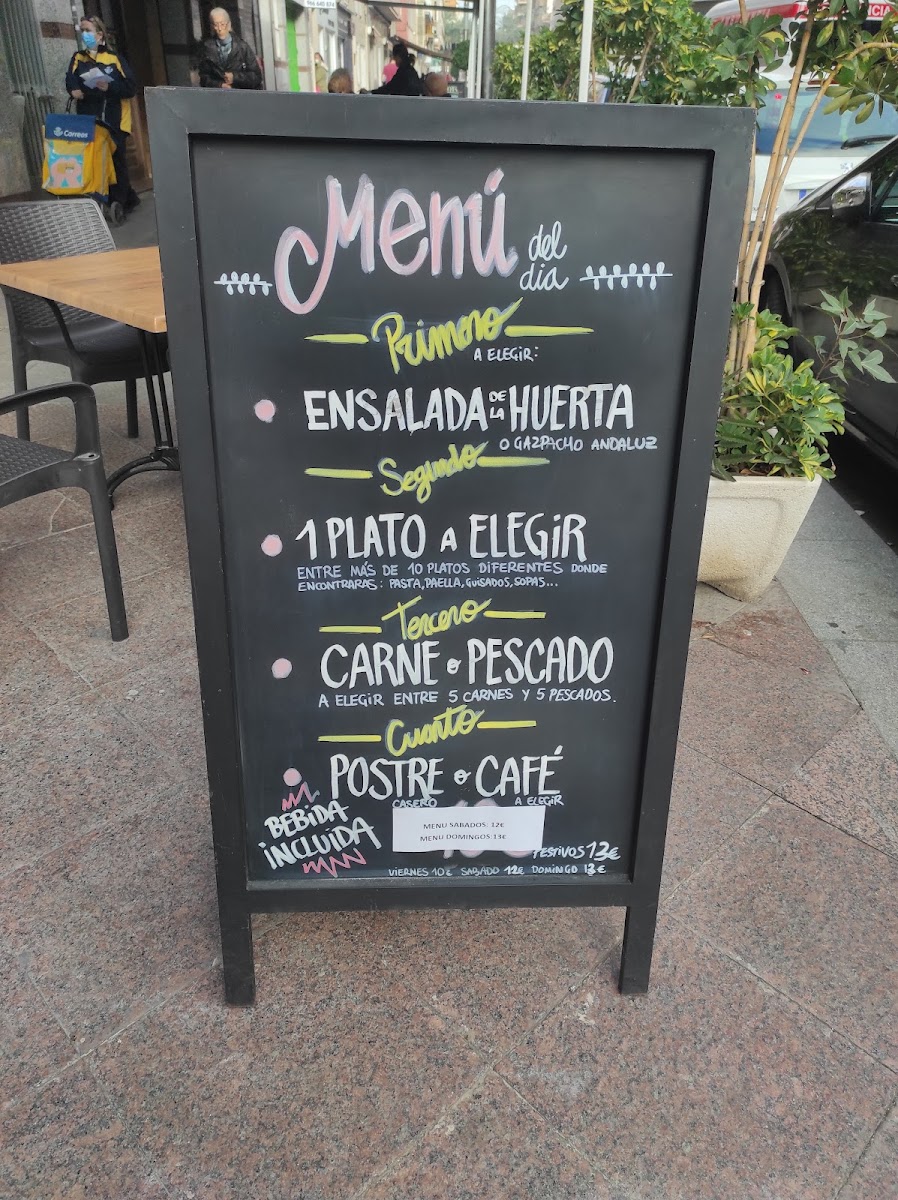 Correos
Menú del día
Primero
A ELEGIR:
ENSALADA DE LA HUERTA
O GAZPACHO ANDALUZ
Segundo
1 PLATO A ELEGIR
ENTRE MÁS DE 10 PLATOS DIFERENTES DONDE
ENCONTRARAS: PASTA, PAELLA, GUISADOS, SOPAS...
Tercero
CARNE o PESCADO
A ELEGIR ENTRE 5 CARNES Y 5 PESCADOS.
Cuarto
POSTRE o CAFÉ
CASERO A ELEGIR
BEBIDA
INCLUIDA
MENU SABADOS: 12€
MENU DOMINGOS 13€
FESTIVOS 13€
VIERNES 10€ SABADO 12€ DOMINGO 13€